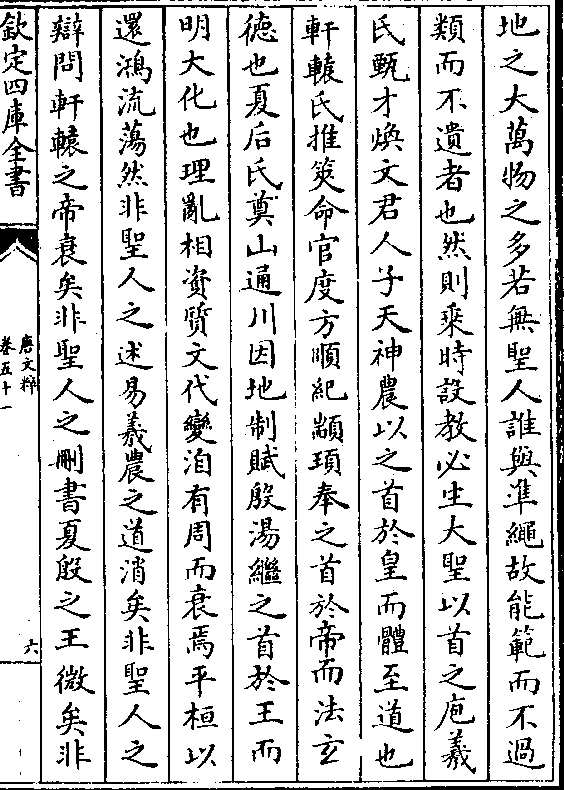 地之大萬物之多若無聖人誰與準繩故能範而不過
類而不遺者也然則乗時設教必生大聖以首之庖羲
氏甄才煥文君人子天神農以之首於皇而體至道也
軒轅氏推筴命官度方順紀顓頊奉之首於帝而法玄
徳也夏后氏奠山通川因地制賦殷湯繼之首於王而
明大化也理亂相資質文代變洎有周而衰焉平桓以
還鴻流蕩然非聖人之述易羲農之道消矣非聖人之
辯問軒轅之帝衰矣非聖人之刪書夏殷之王微矣非
欽定四庫全書
唐文粹
卷五十一
六